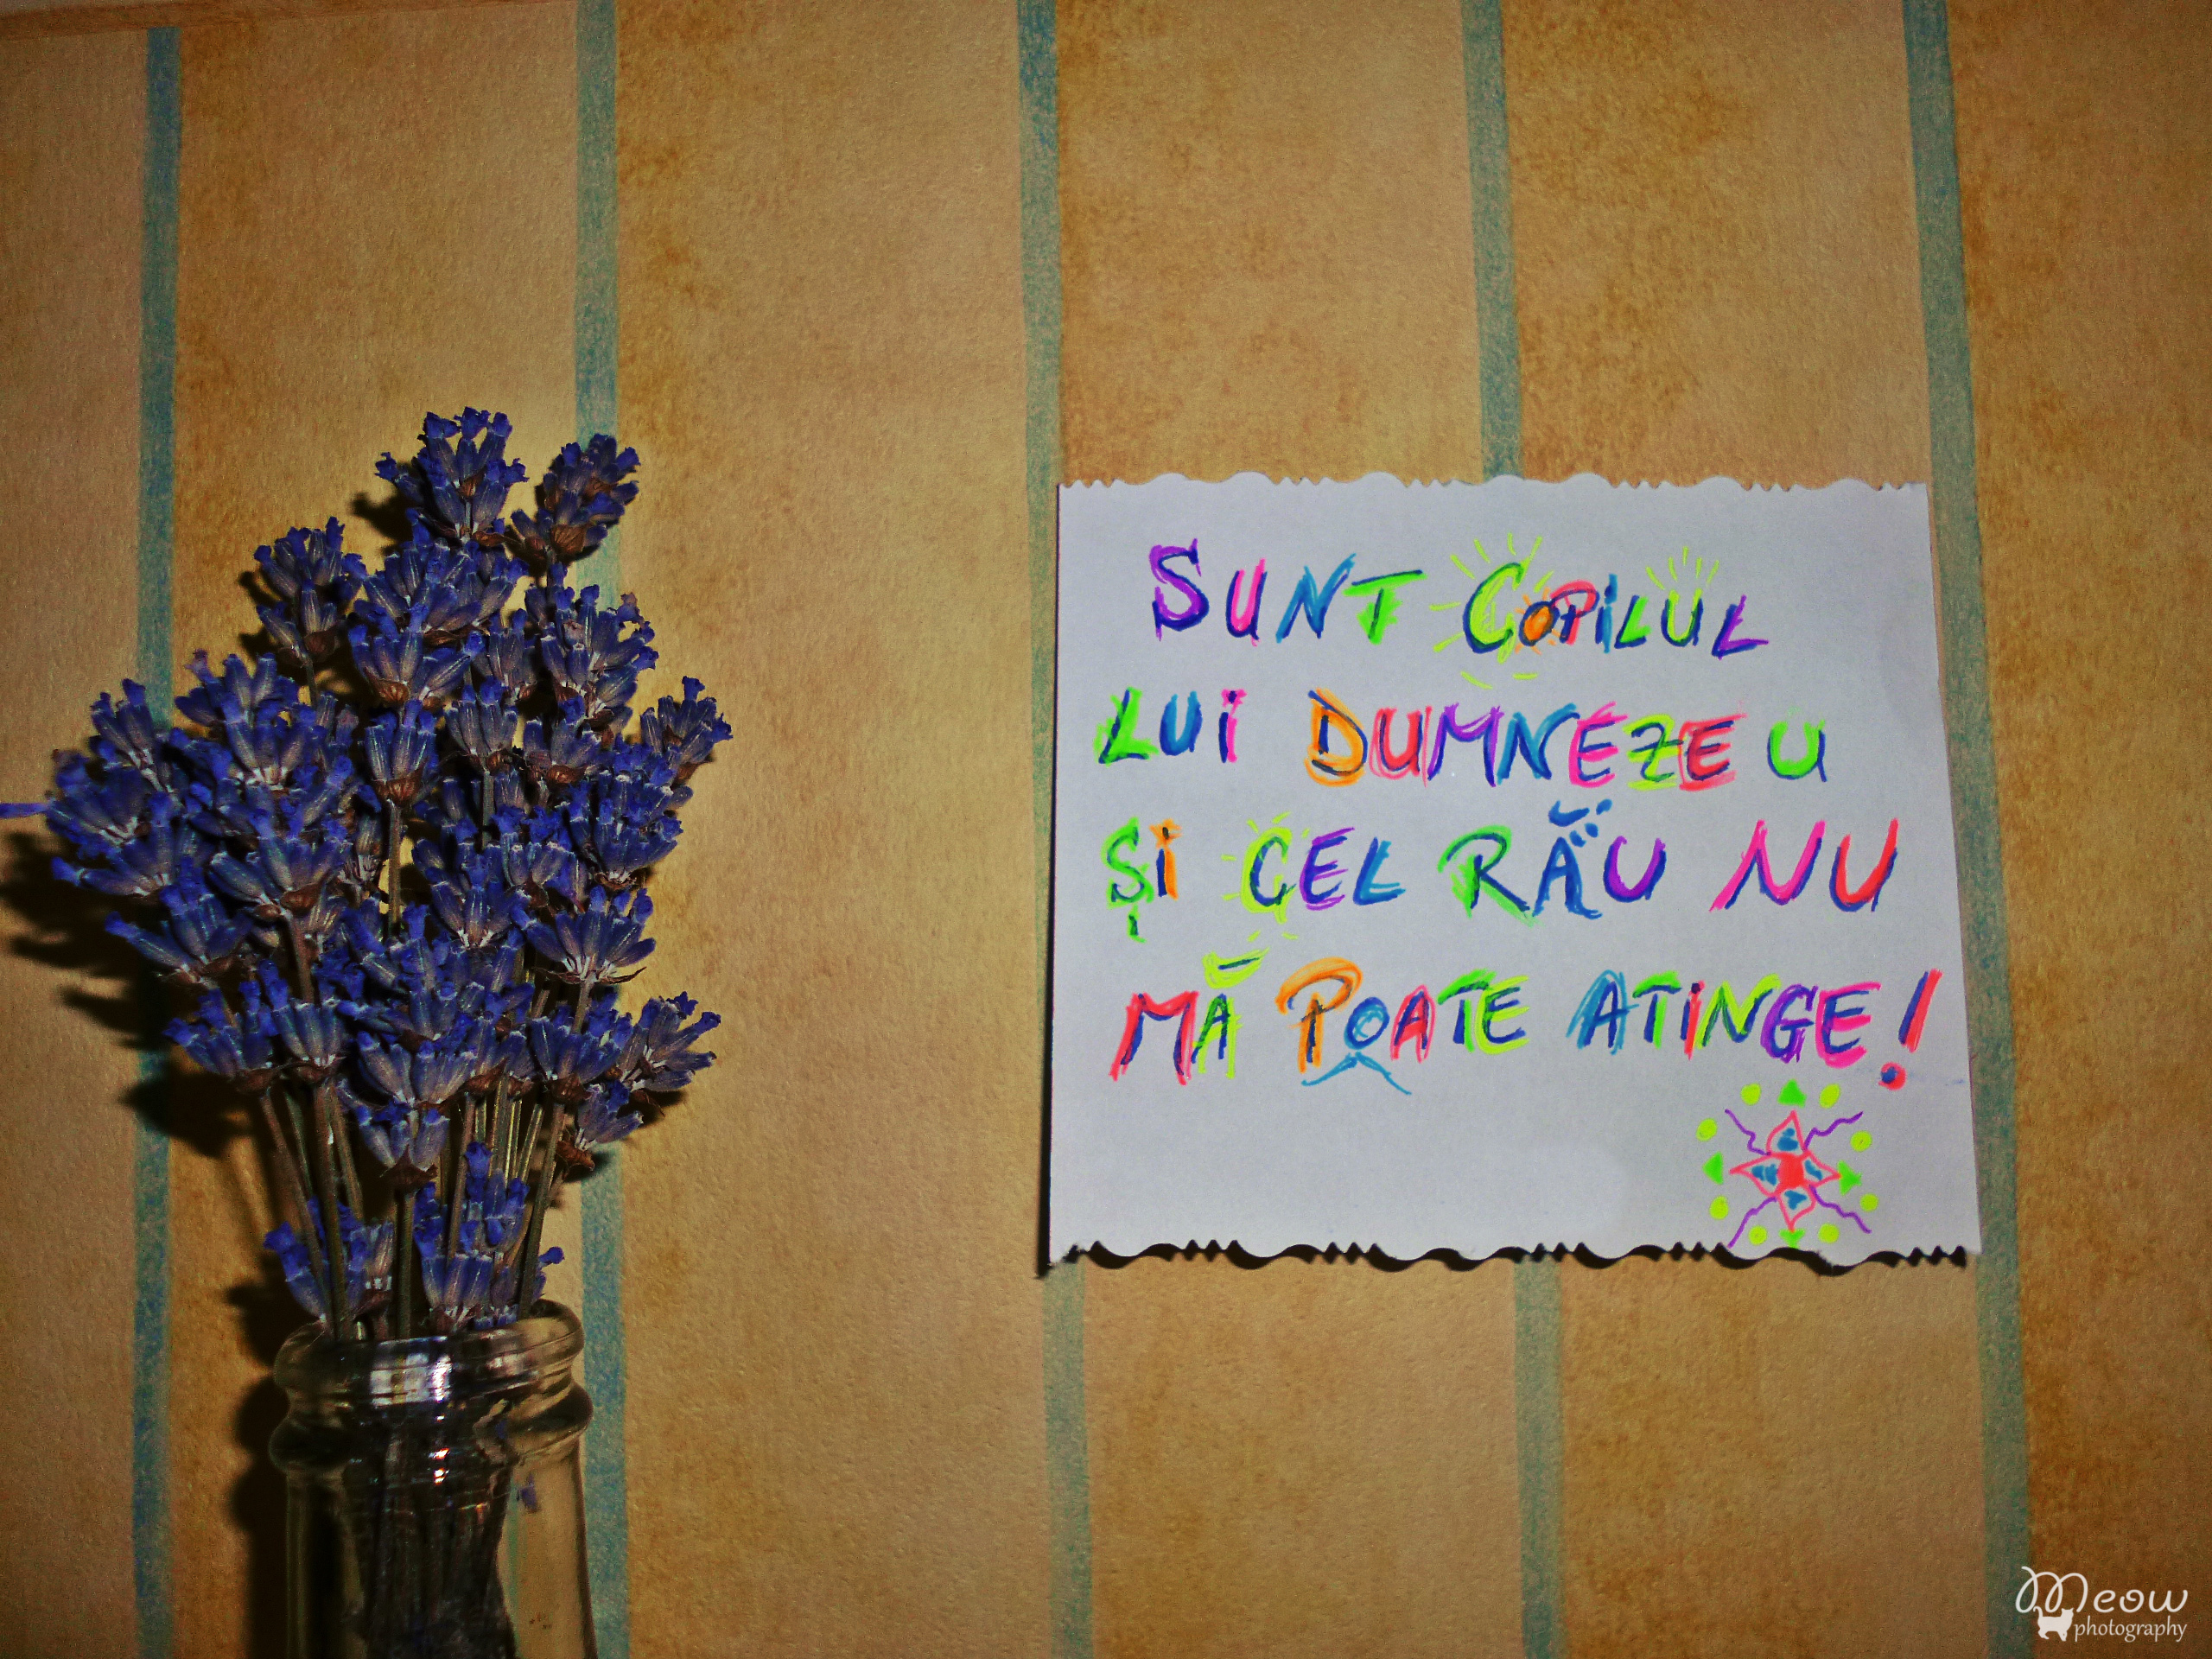 SUNT COPILUL
LUI DUMNEZEU
ȘI CEL RĂU NU
MĂ POATE ATINGE!
Meow
photography